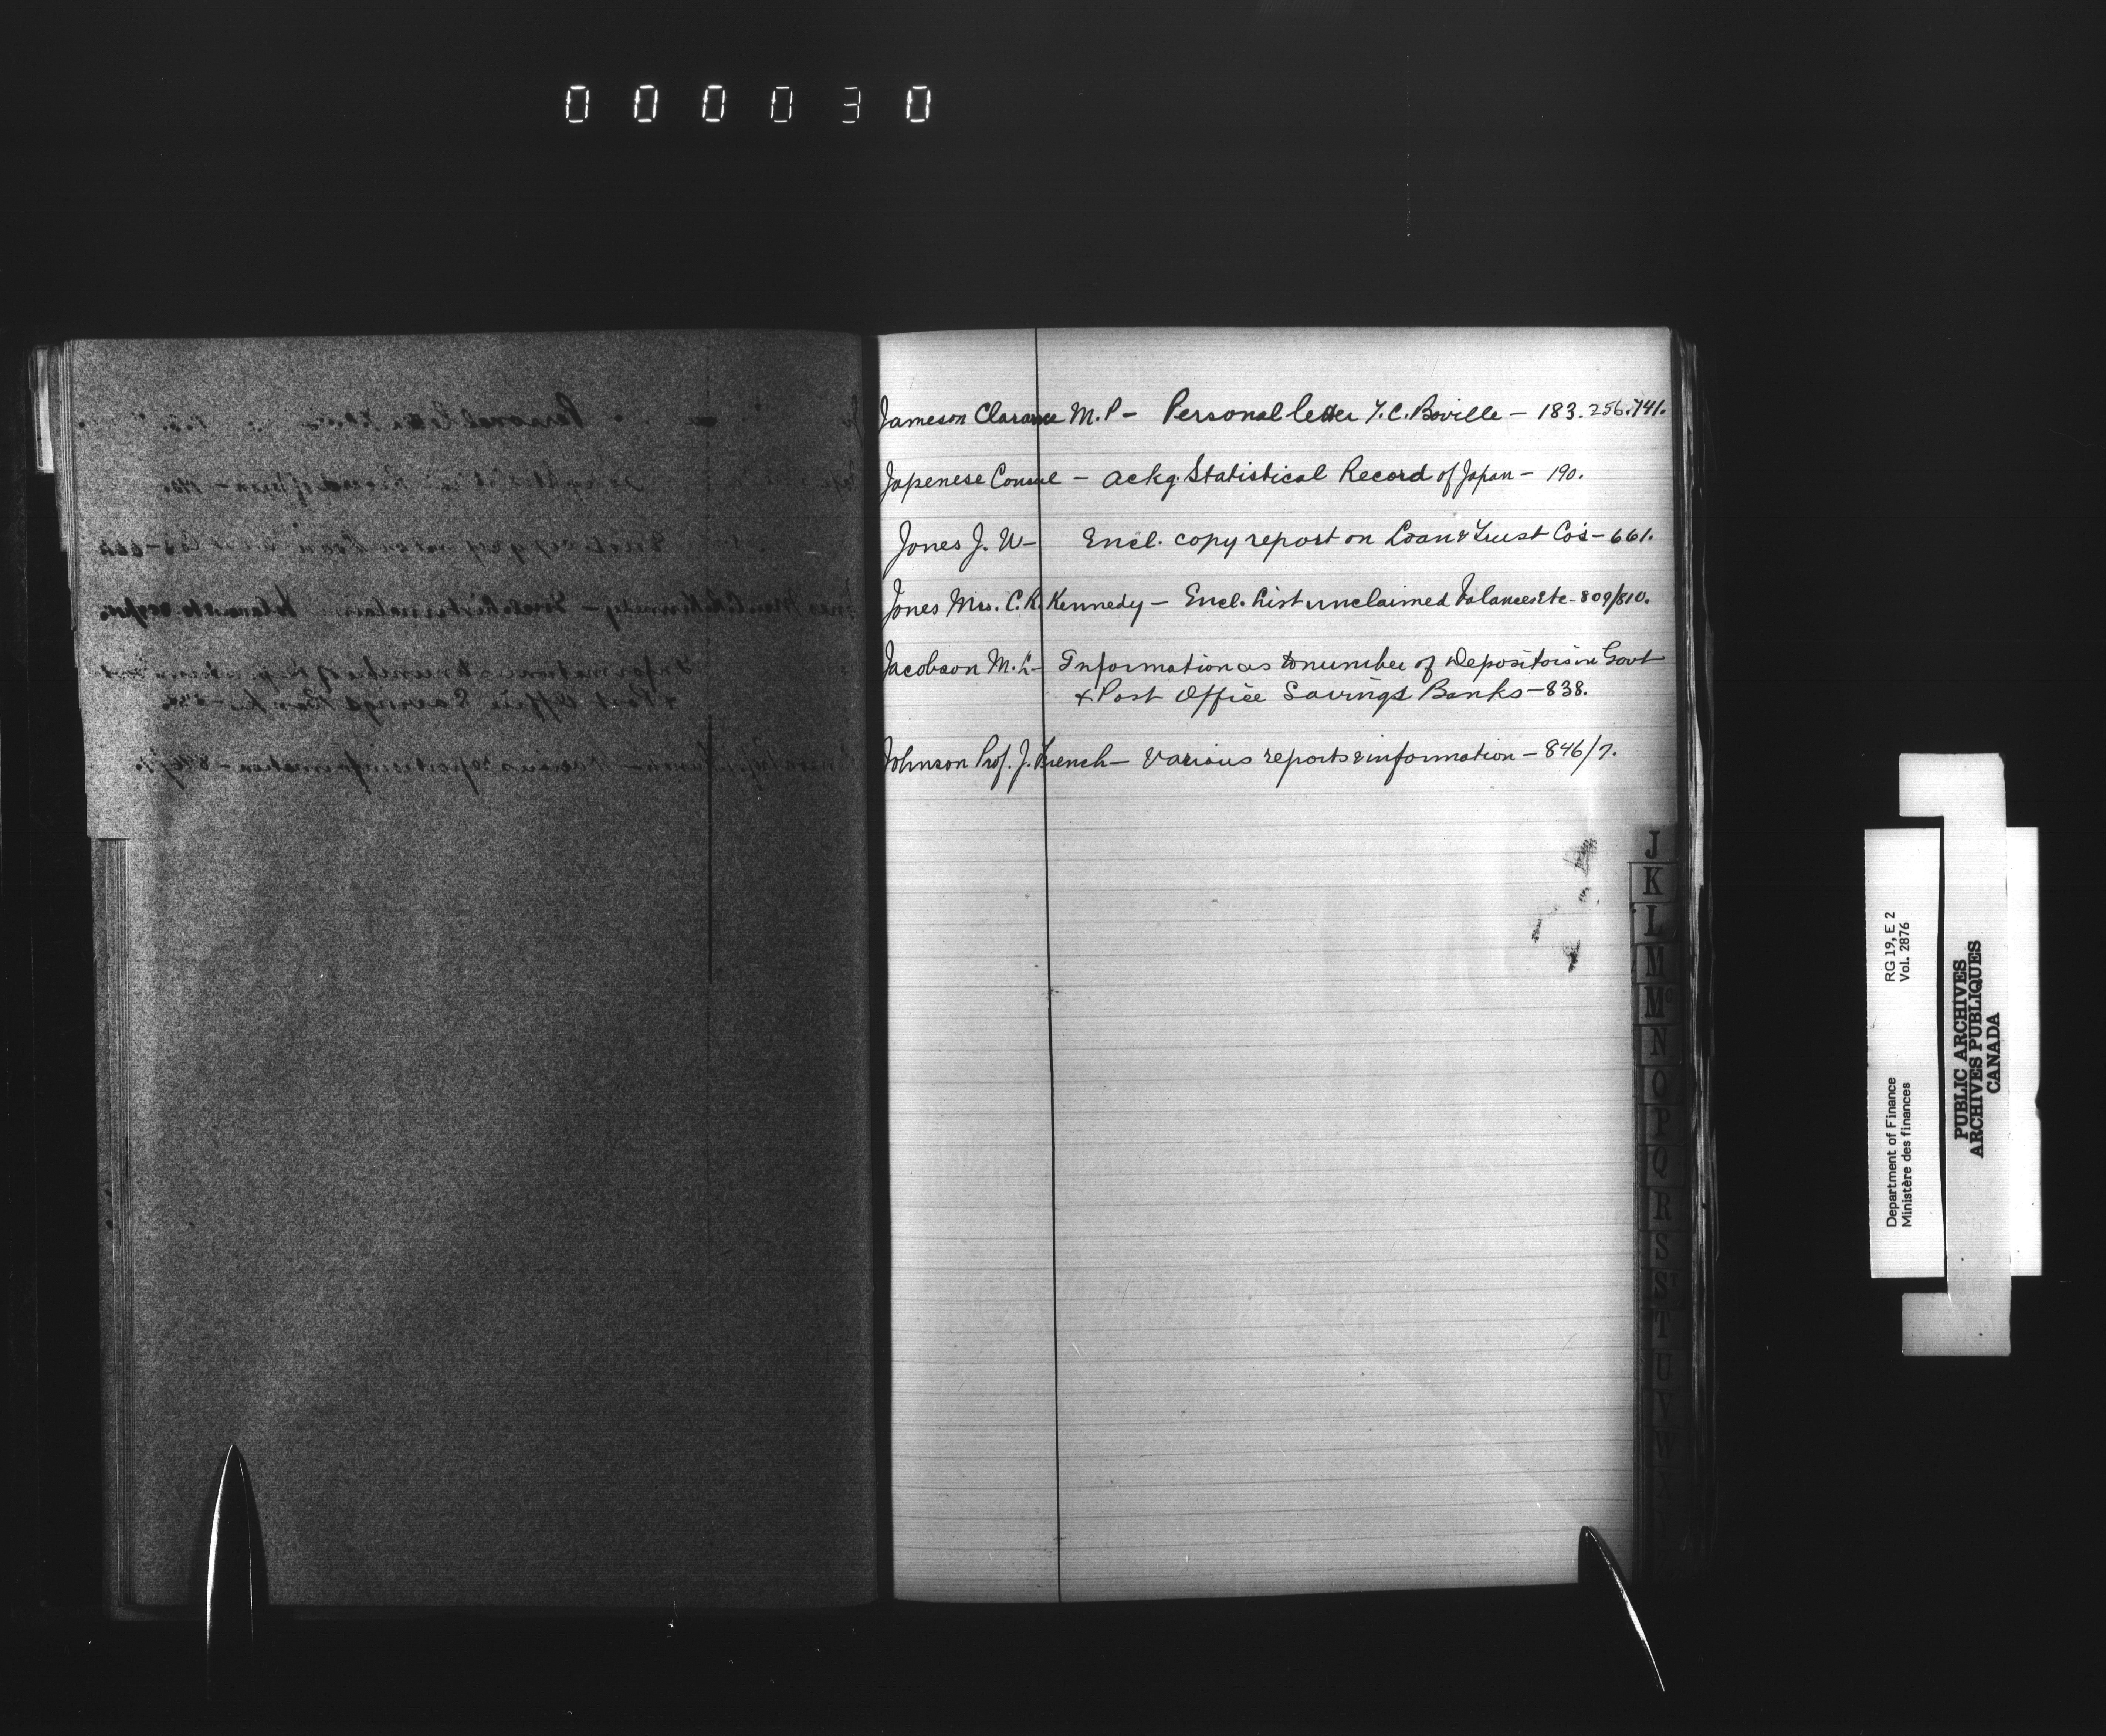 000030
Jameson Clarance M.P – Personal letter T.C. Boville – 183. 256. 741.
Japenese Consul – ackg. Statistical Record of Japan – 190.
Jones J. W – Encl. copy report on Loan & Trust Co's – 661.
Jones Mrs. C. R. Kennedy – Encl. List unclaimed balances etc – 809/810.
Jacobson M. L – Information as to number of Depositors in Govt
& Post Office Savings Banks – 838.
Johnson Prof. J. French – Various reports & information – 846/7.
J
K
L
M
Mc
N
O
P
Q
R
S
ST
T
U
V
W
Department of Finance RG 19, E 2
Ministère des finances Vol. 2876
PUBLIC ARCHIVES
ARCHIVES PUBLIQUES
CANADA